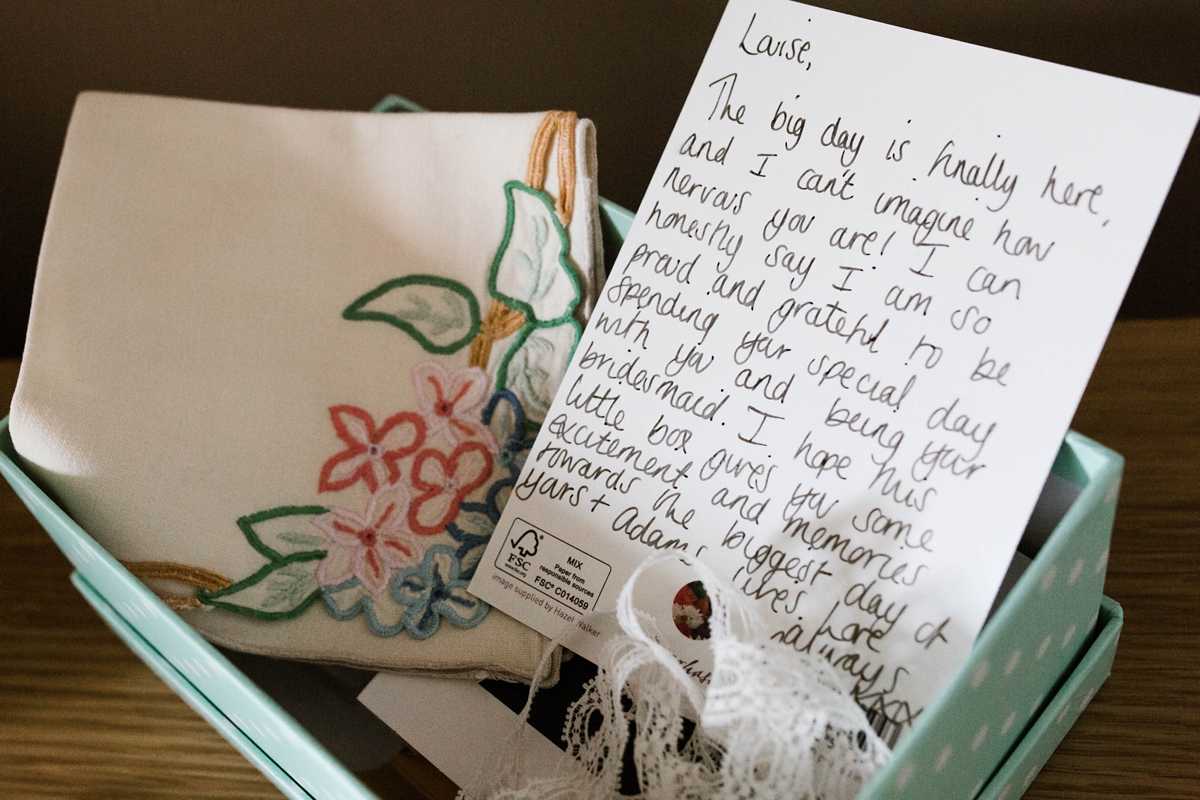 Louise,
The big day is finally here,
and I can't imagine how
nervous you are! I can
honestly say I am so
proud and grateful to be
spending your special day
with you and being your
bridesmaid. I hope this
little box gives you some
excitement and memories
towards the biggest day of
yours + Adams lives. Love
always
xxxx
FSC
www.fsc.org
MIX
Paper from
responsible sources
FSC® C014059
image supplied by Hazel Walker